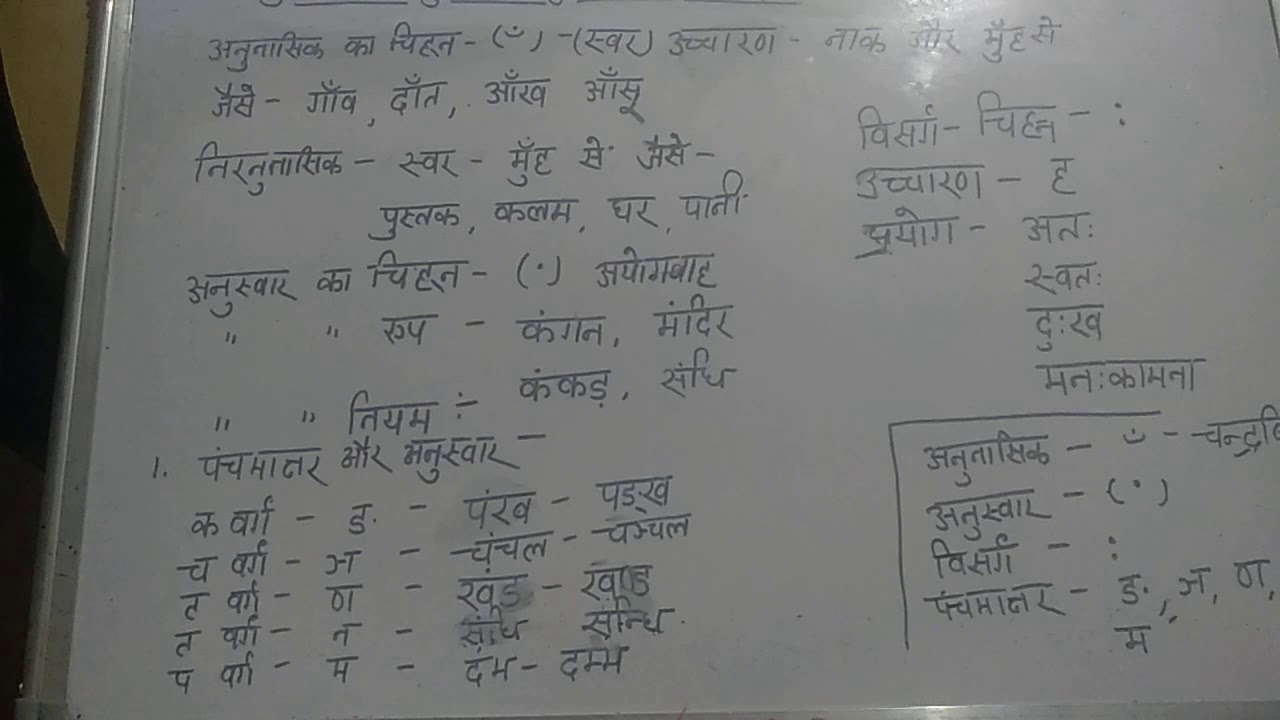 अनुनासिक का चिह्न - (ँ) - (स्वर) उच्चारण - नाक और मुँह से
जैसे - गाँव, दाँत, आँख आँसू
निरनुनासिक - स्वर - मुँह से जैसे -
पुस्तक, कलम, घर, पानी
अनुस्वार का चिह्न - (ं) अयोगवाह
" " रूप - कंगन, मंदिर
कंकड़, संधि
" " नियम :-
1. पंचमाक्षर और अनुस्वार -
क वर्ग - ङ - पंख - पङ्ख
च वर्ग - ञ - चंचल - चञ्चल
ट वर्ग - ण - खंड - खण्ड
त वर्ग - न - संधि सन्धि
प वर्ग - म - दंभ - दम्भ
विसर्ग - चिह्न - :
उच्चारण - ह
प्रयोग - अतः
स्वतः
दुःख
मनःकामना
अनुनासिक - ँ - चन्द्रबि
अनुस्वार - (ं)
विसर्ग - :
पंचमाक्षर - ङ, ञ, ण,
म